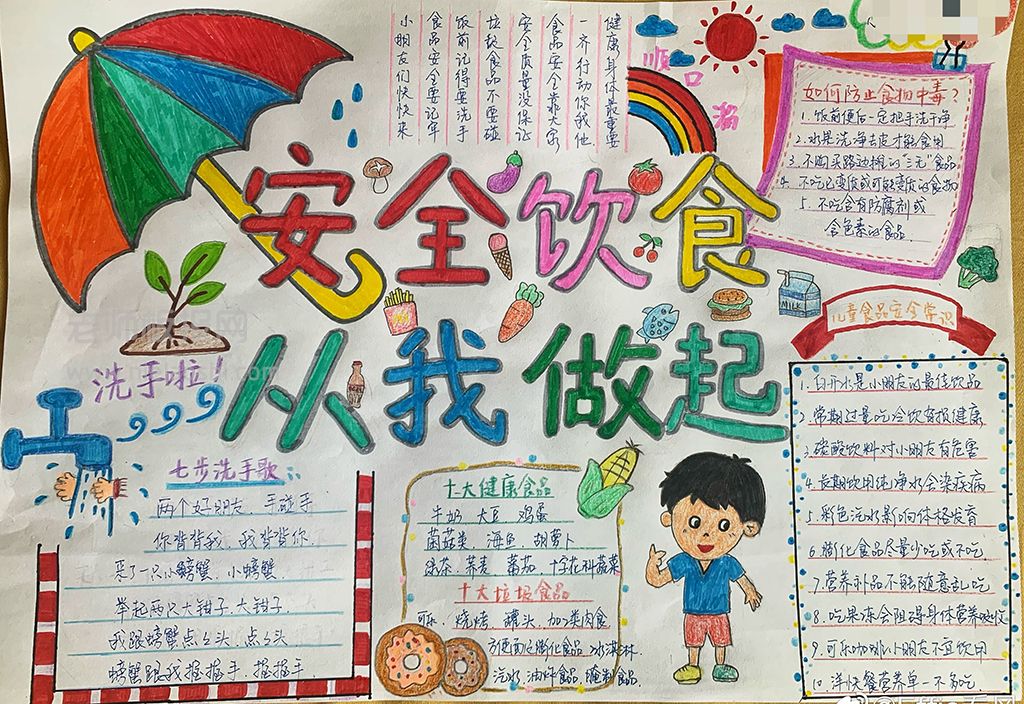 小朋友们快快来
食品安全要记牢
饭前记得要洗手
垃圾食品不要碰
安全质量没保证
食品安全靠大家
一齐行动你我他
健康身体最重要
顺口溜
如何防止食物中毒?
1. 饭前便后一定把手洗干净
2. 水果洗净去皮才能食用
3. 不购买路边摊的"三无"食品
4. 不吃已变质或可能变质的食物
5. 不吃含有防腐剂或
含色素的食品.
安全饮食
从我做起
MILK
儿童食品安全常识
1. 白开水是小朋友的最佳饮品
2. 常期过量吃冷饮有损健康
3. 碳酸饮料对小朋友有危害
4. 长期饮用纯净水会染疾病
5. 彩色汽水影响体格发育
6. 膨化食品尽量少吃或不吃
7. 营养补品不能随意乱吃
8. 吃果冻会阻碍身体营养吸收
9. 可乐咖啡小朋友不宜饮用
10. 洋快餐营养单一不多吃.
洗手啦!
七步洗手歌
两个好朋友, 手碰手
你背背我, 我背背你.
来了一只小螃蟹, 小螃蟹.
举起两只大钳子, 大钳子.
我跟螃蟹点点头, 点点头
螃蟹跟我握握手, 握握手.
十大健康食品
牛奶 大豆 鸡蛋
菌菇类 海鱼 胡萝卜
绿茶 荞麦 番茄 十字花科蔬菜
十大垃圾食品
可乐. 烧烤 罐头. 加工类肉食
方便面及膨化食品 冰淇淋.
汽水. 油炸食品. 腌制食品.